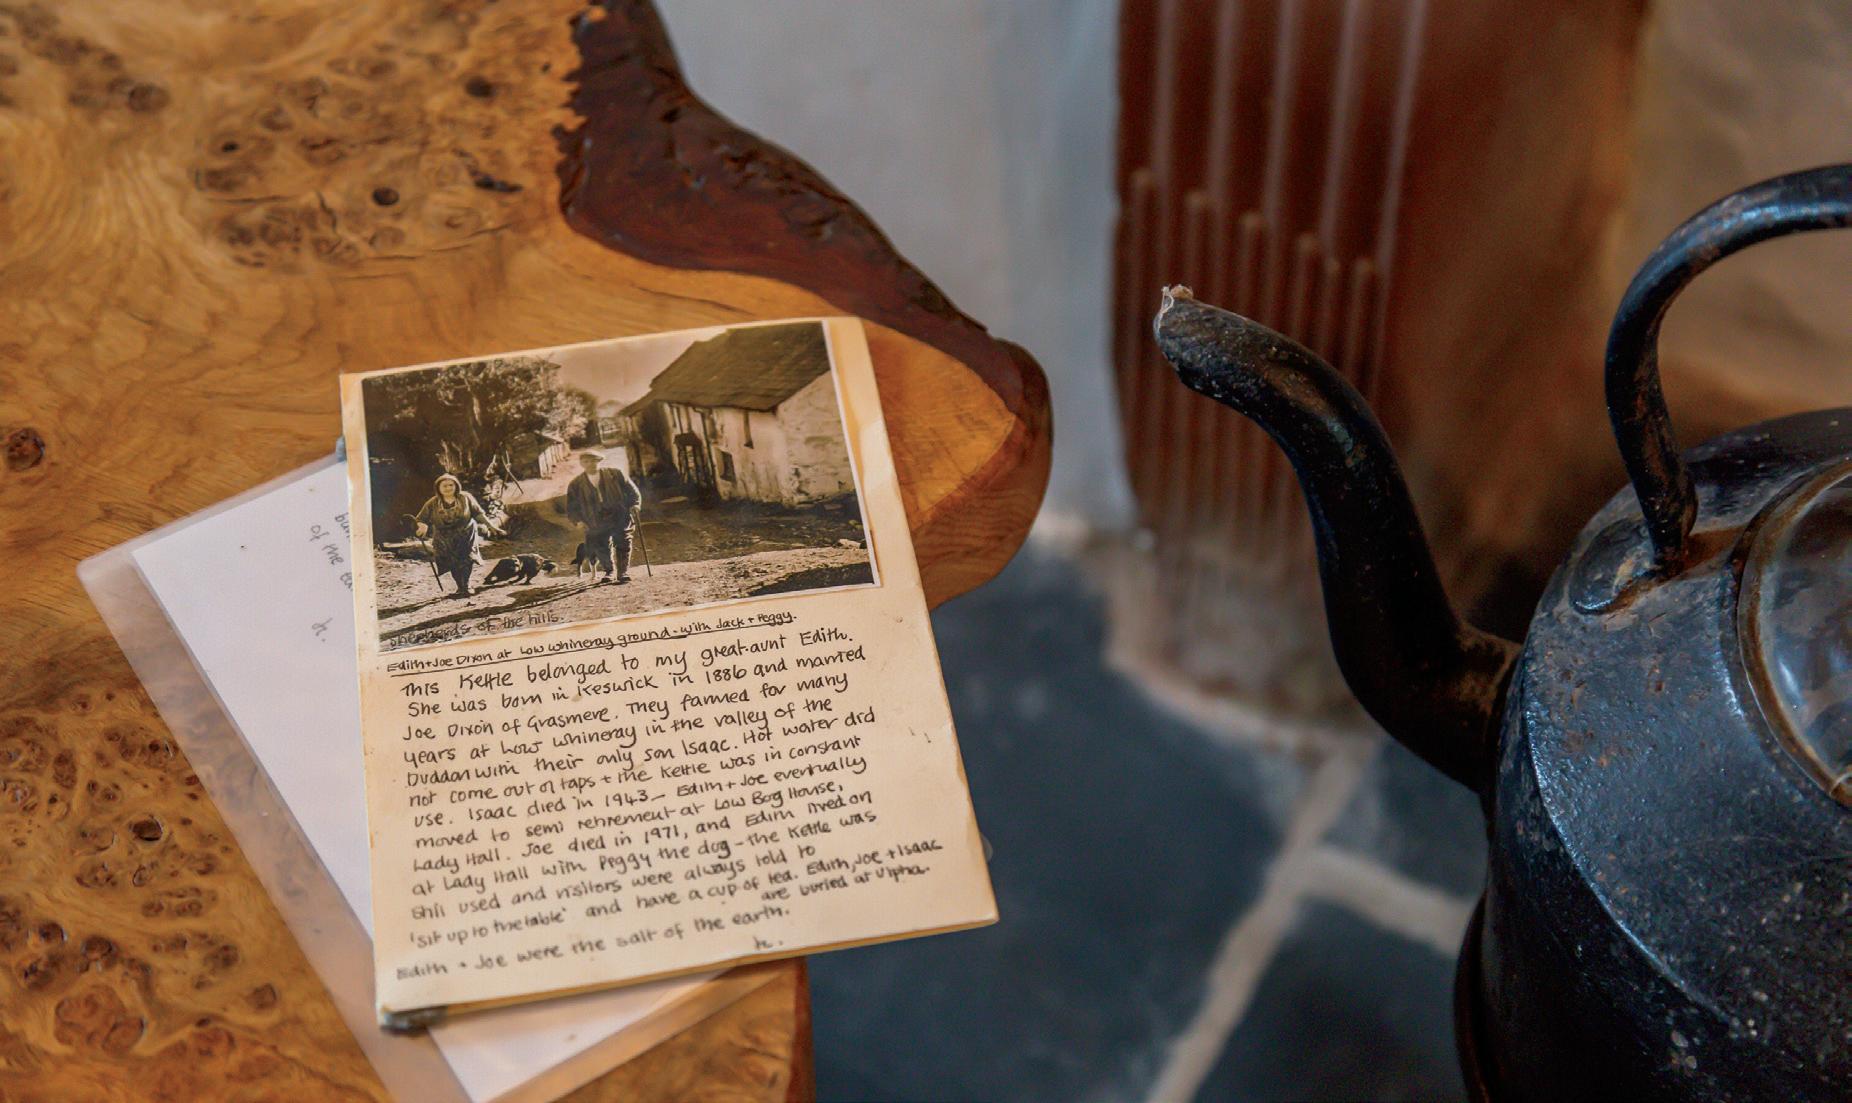 Shepherds of the hills.
Edith + Joe Dixon at Low Whineray ground - with Jack + Peggy.
This Kettle belonged to my great-aunt Edith.
She was born in Keswick in 1886 and married
Joe Dixon of Grasmere. They farmed for many
years at Low Whineray in the valley of the
Duddon with their only son Isaac. Hot water did
not come out of taps + the kettle was in constant
use. Isaac died in 1943 - Edith + Joe eventually
moved to semi retirement at Low Bog House,
Lady Hall. Joe died in 1971, and Edith lived on
at Lady Hall with Peggy the dog - the kettle was
still used and visitors were always told to
'sit up to the table' and have a cup of tea. Edith, Joe + Isaac
are buried at Ulpha.
Edith + Joe were the salt of the earth.
of the